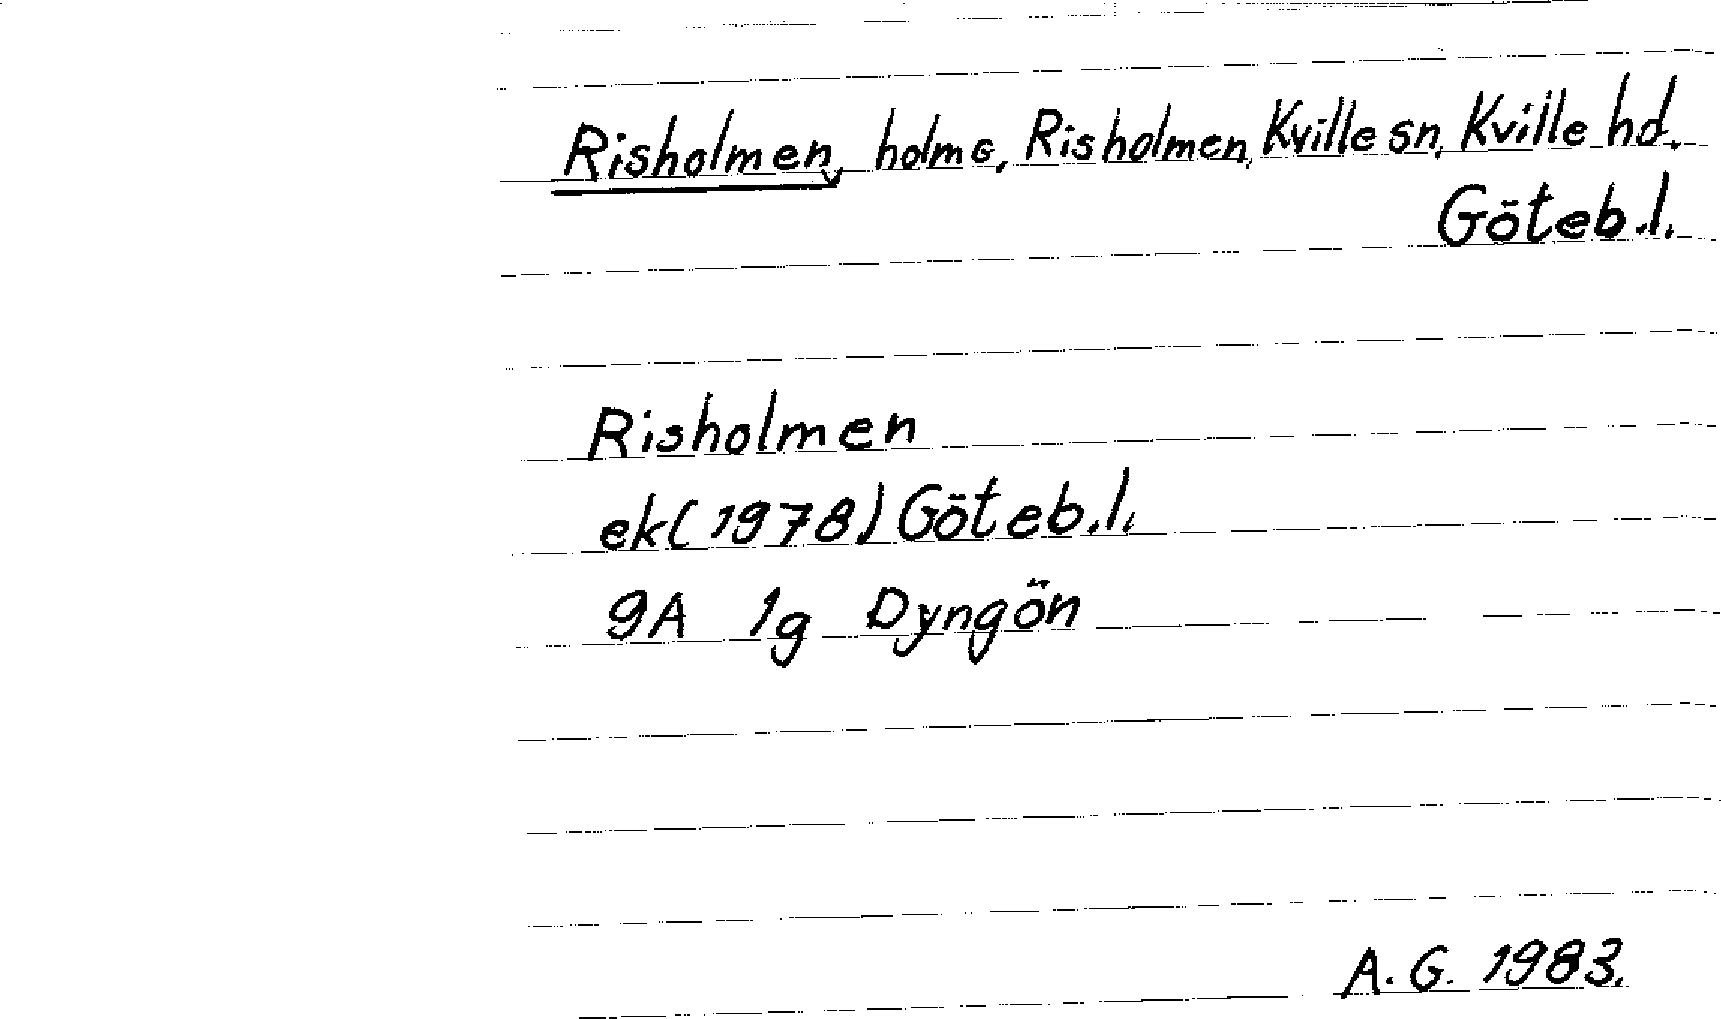 Risholmen, holme, Risholmen, Kville sn, Kville hd.
Göteb.l.
Risholmen
ek(1978) Göteb.l.
9A 1g Dyngön
A.G. 1983.